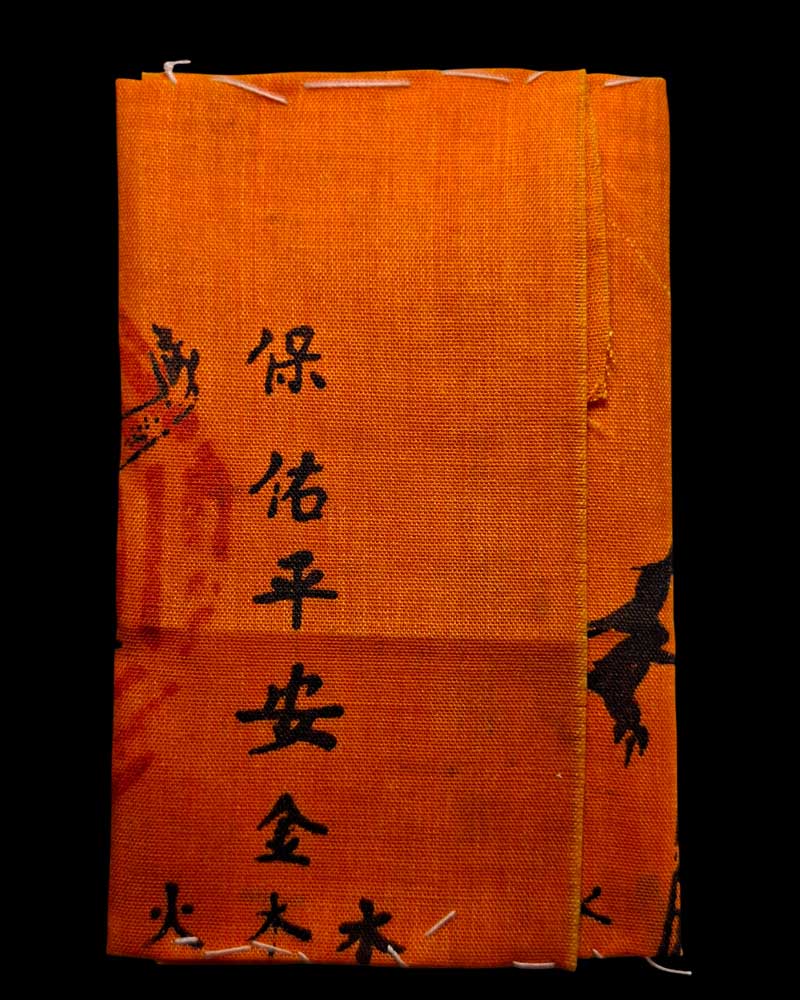 木
保佑平安金
火